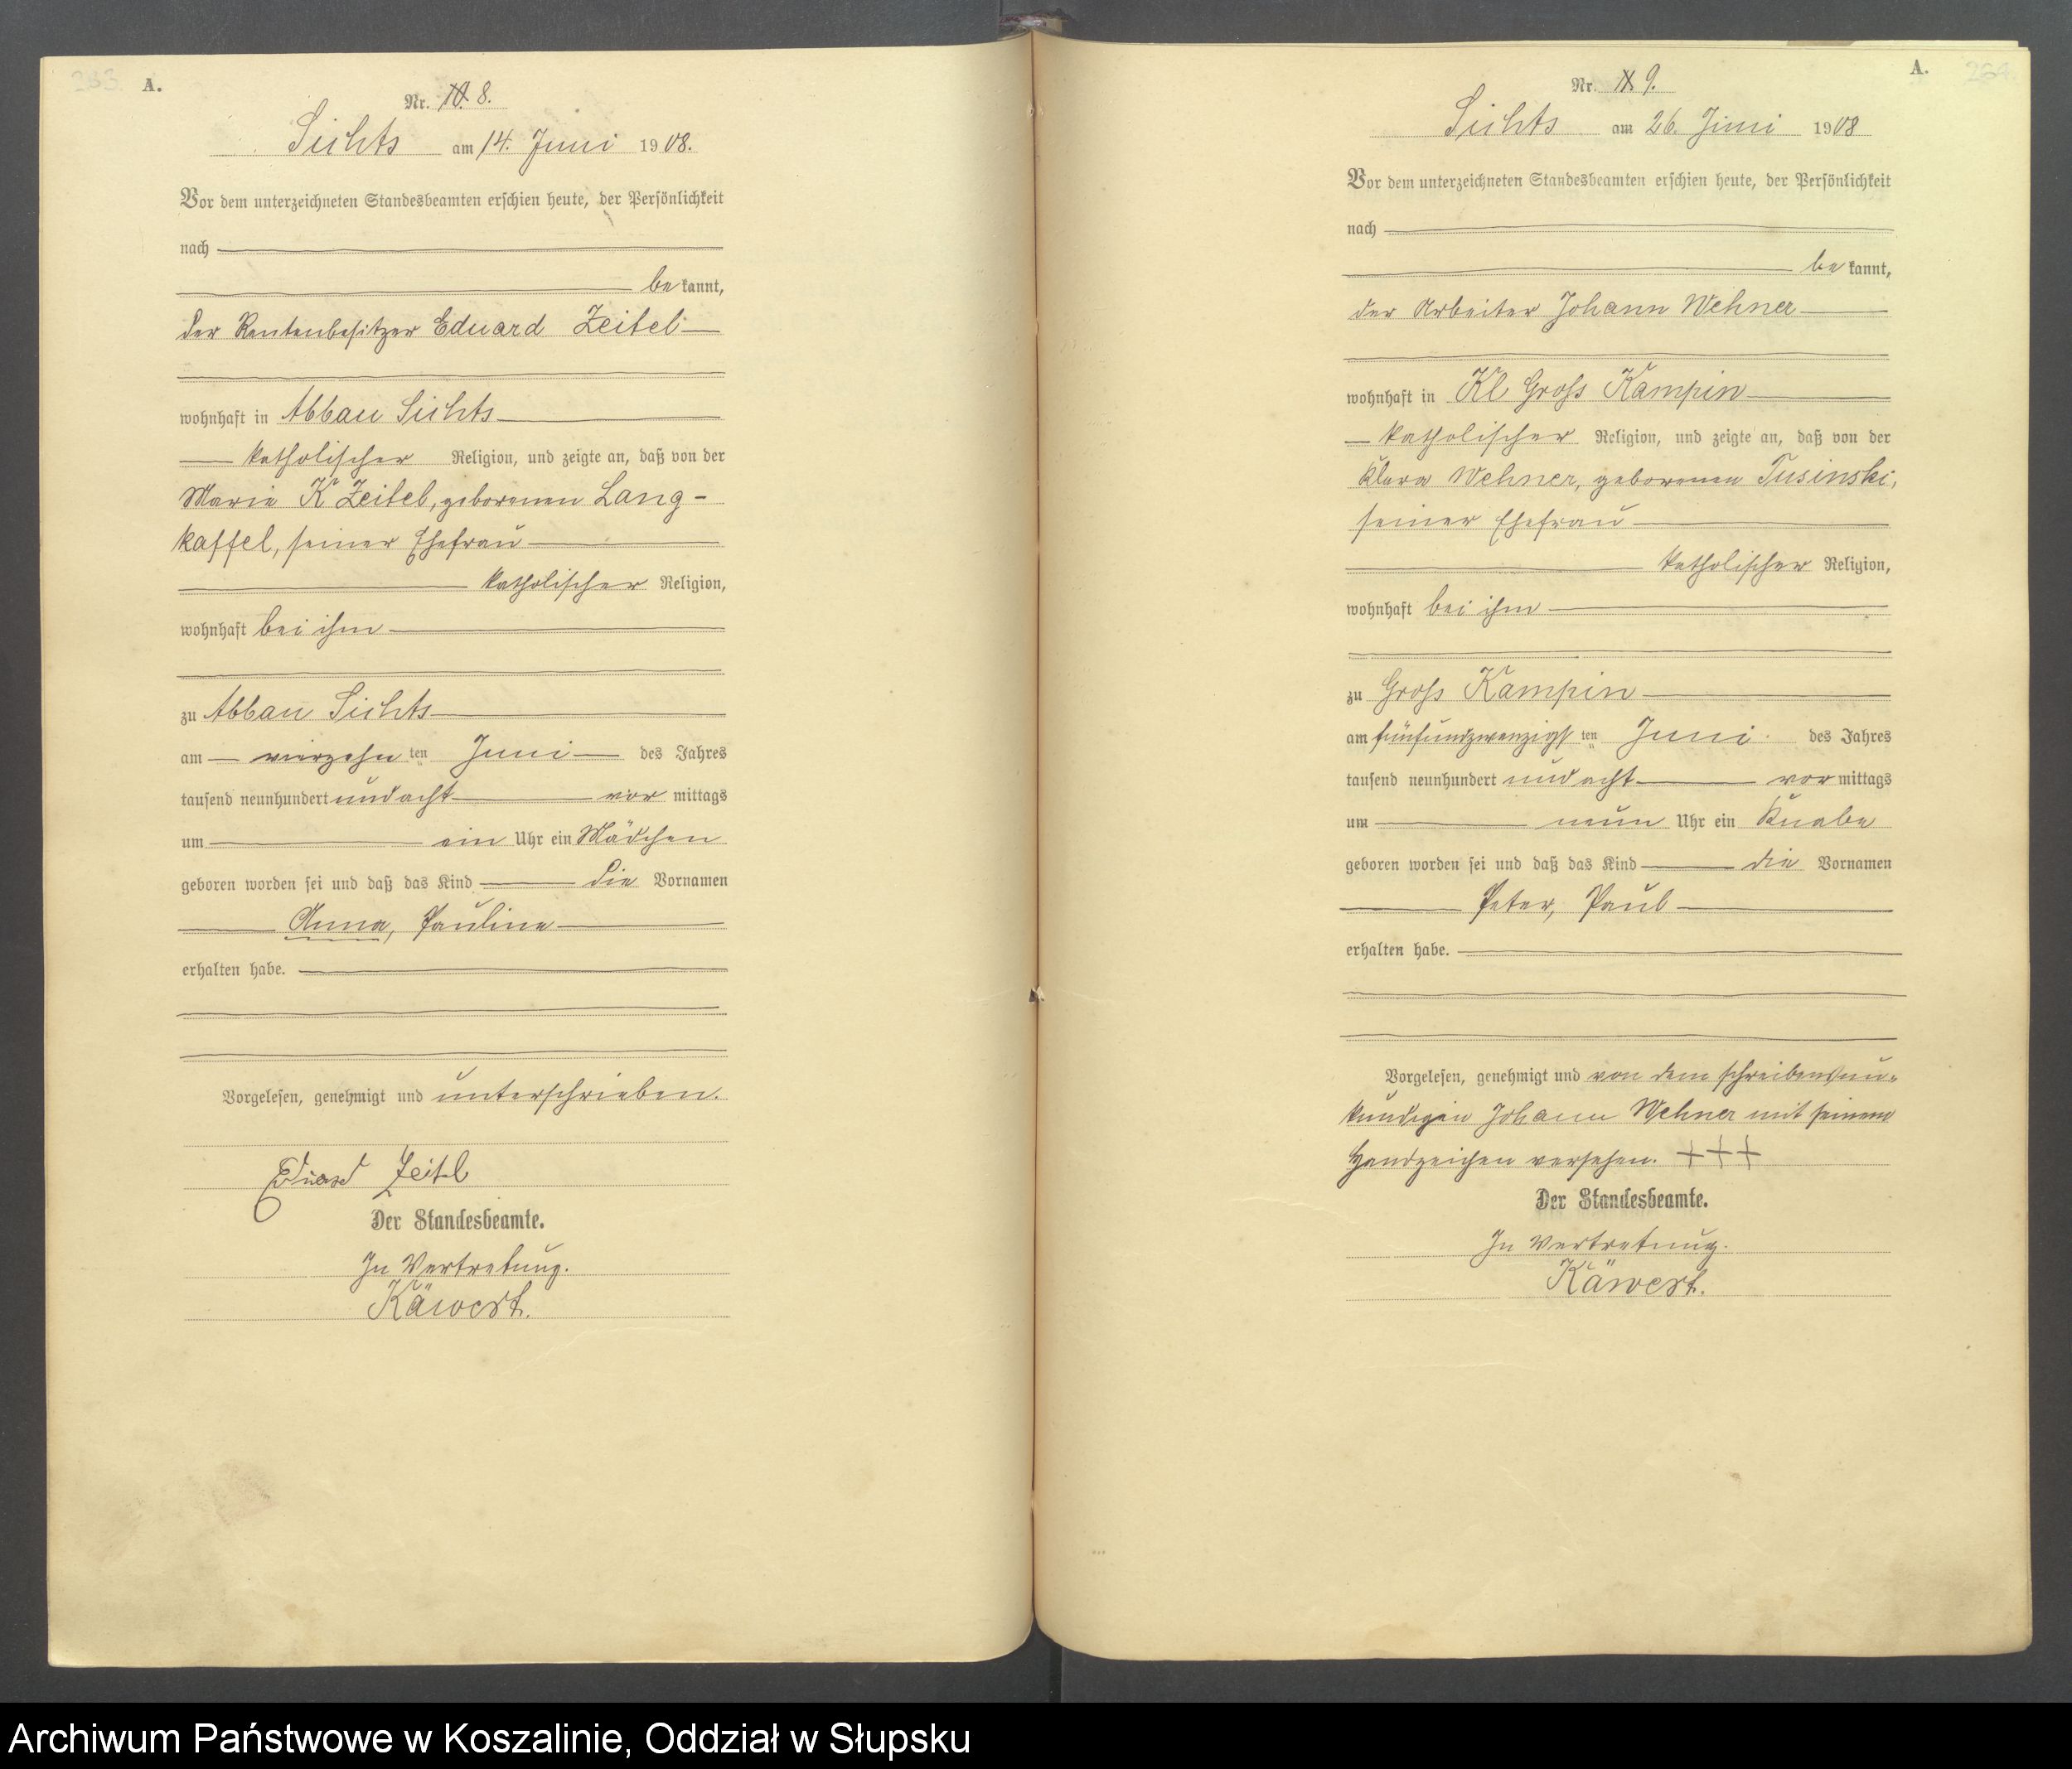 A.
Nr. 10. 8.
Sichts am 14. Juni 1908.
Vor dem unterzeichneten Standesbeamten erschien heute, der Persönlichkeit
nach
be kannt,
der Rentenbesitzer Eduard Zeitel
wohnhaft in Abbau Sichts
katholischer Religion, und zeigte an, daß von der
Marie Zeitel, geborenen Lang-
kaffel, seiner Ehefrau
katholischer Religion,
wohnhaft bei ihm
zu Abbau Sichts
am vierzehn ten Juni des Jahres
tausend neunhundert und acht vor mittags
um ein Uhr ein Mädchen
geboren worden sei und daß das Kind die Vornamen
Anna, Pauline
erhalten habe.
Vorgelesen, genehmigt und unterschrieben.
Eduard Zeitel
Der Standesbeamte.
In Vertretung.
Käwert.
A.
264
Nr. 11. 9.
Sichts am 26. Juni 1908
Vor dem unterzeichneten Standesbeamten erschien heute, der Persönlichkeit
nach
be kannt,
der Arbeiter Johann Wehner
wohnhaft in Kl Gross Kampin
katholischer Religion, und zeigte an, daß von der
Klara Wehner, geborenen Tusinski,
seiner Ehefrau
katholischer Religion,
wohnhaft bei ihm
zu Gross Kampin
am fünfundzwanzigst ten Juni des Jahres
tausend neunhundert und acht vor mittags
um neun Uhr ein Knabe
geboren worden sei und daß das Kind die Vornamen
Peter, Paul
erhalten habe.
Vorgelesen, genehmigt und von dem schreibensun-
kundigen Johann Wehner mit seinem
Handzeichen versehen. +++
Der Standesbeamte.
In Vertretung.
Käwert.
Archiwum Państwowe w Koszalinie, Oddział w Słupsku